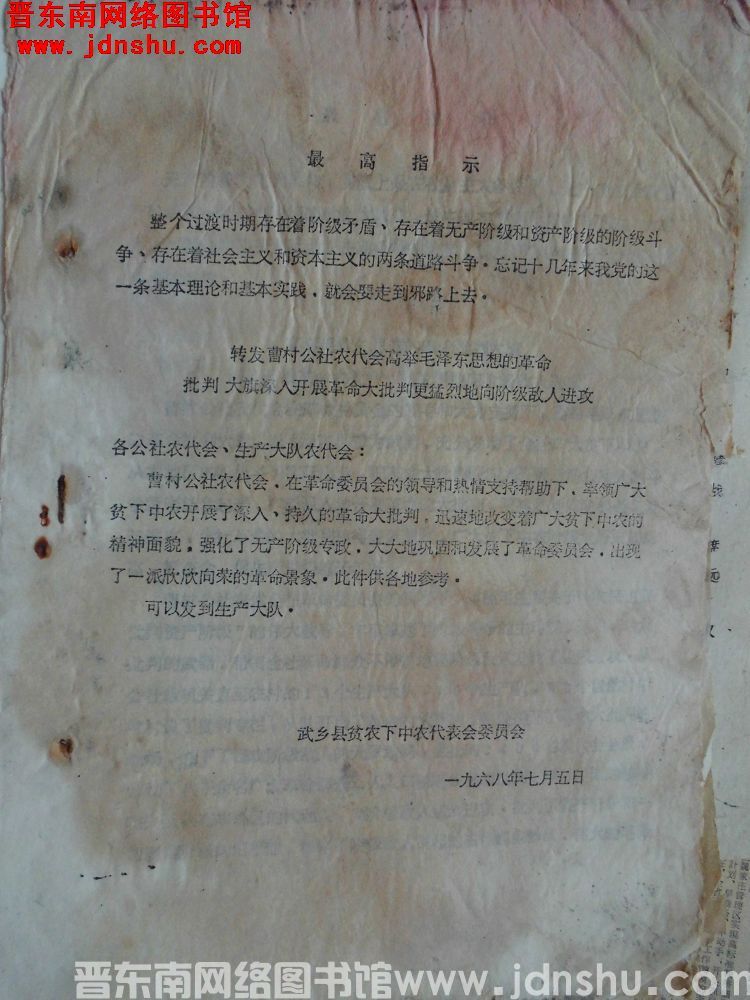 晋东南网络图书馆
www.jdnshu.com
最高指示
整个过渡时期存在着阶级矛盾、存在着无产阶级和资产阶级的阶级斗
争、存在着社会主义和资本主义的两条道路斗争。忘记十几年来我党的这
一条基本理论和基本实践，就会要走到邪路上去。
转发曹村公社农代会高举毛泽东思想的革命
批判 大旗深入开展革命大批判更猛烈地向阶级敌人进攻
各公社农代会、生产大队农代会：
曹村公社农代会，在革命委员会的领导和热情支持帮助下，率领广大
贫下中农开展了深入、持久的革命大批判，迅速地改变着广大贫下中农的
精神面貌，强化了无产阶级专政，大大地巩固和发展了革命委员会，出现
了一派欣欣向荣的革命景象。此件供各地参考。
可以发到生产大队。
武乡县贫农下中农代表会委员会
一九六八年七月五日
晋东南网络图书馆www.jdnshu.com